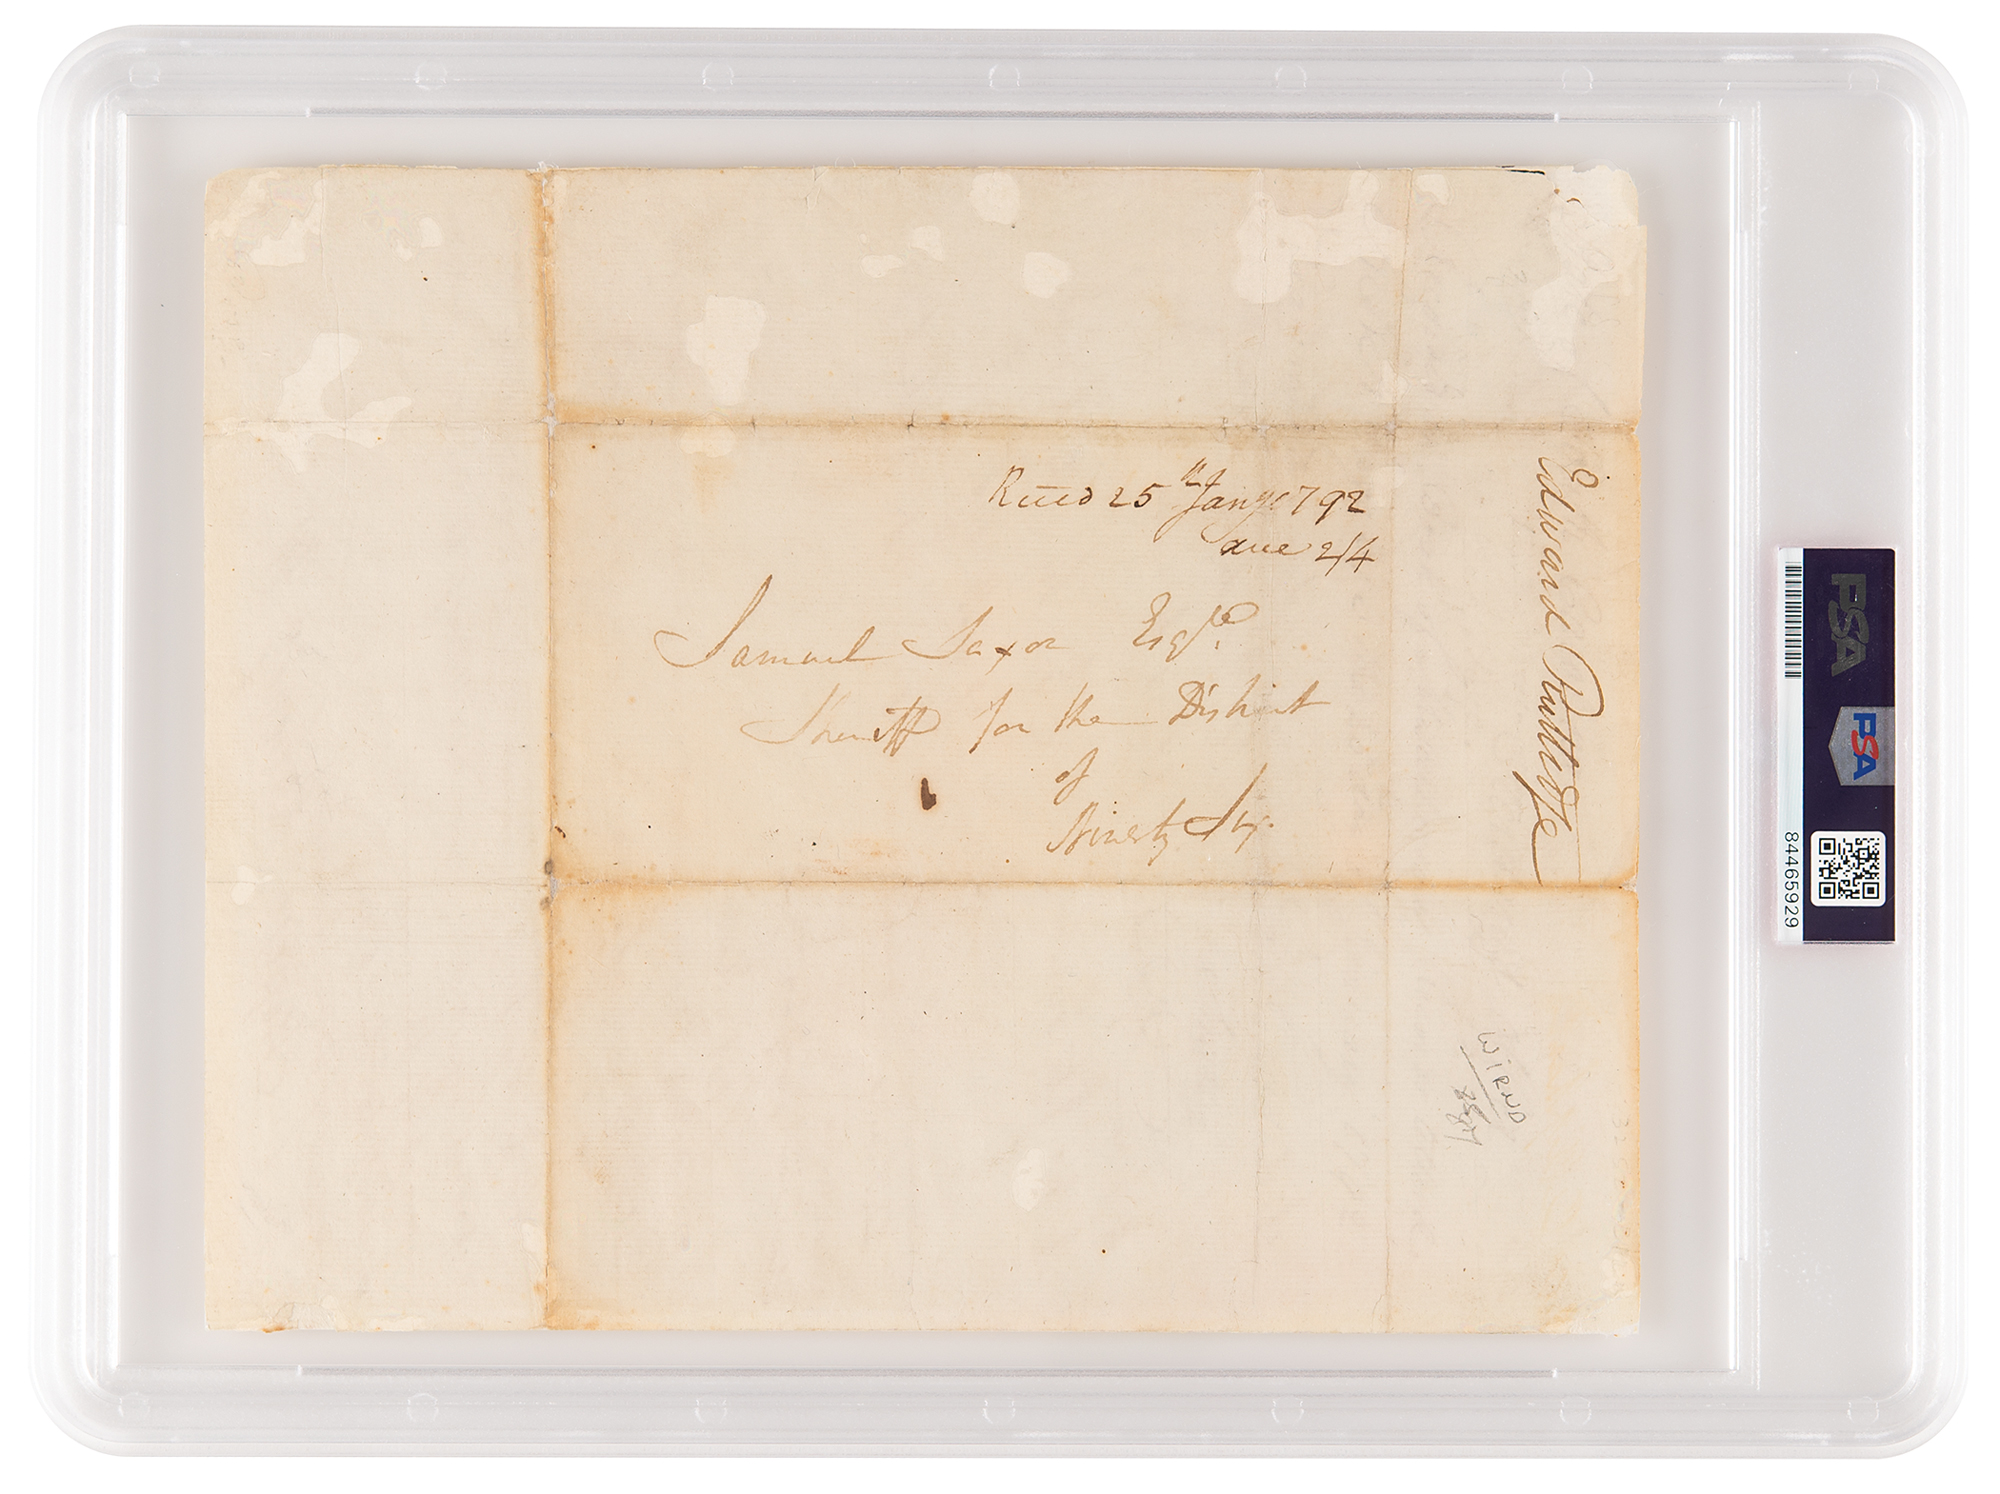 Recd 25th Jany 1792
due 2/4
Samuel Saxon Esqre.
Sheriff for the District
of
Ninety Six.
Edward Rutledge
WIRND
PSA
PSA
84465929